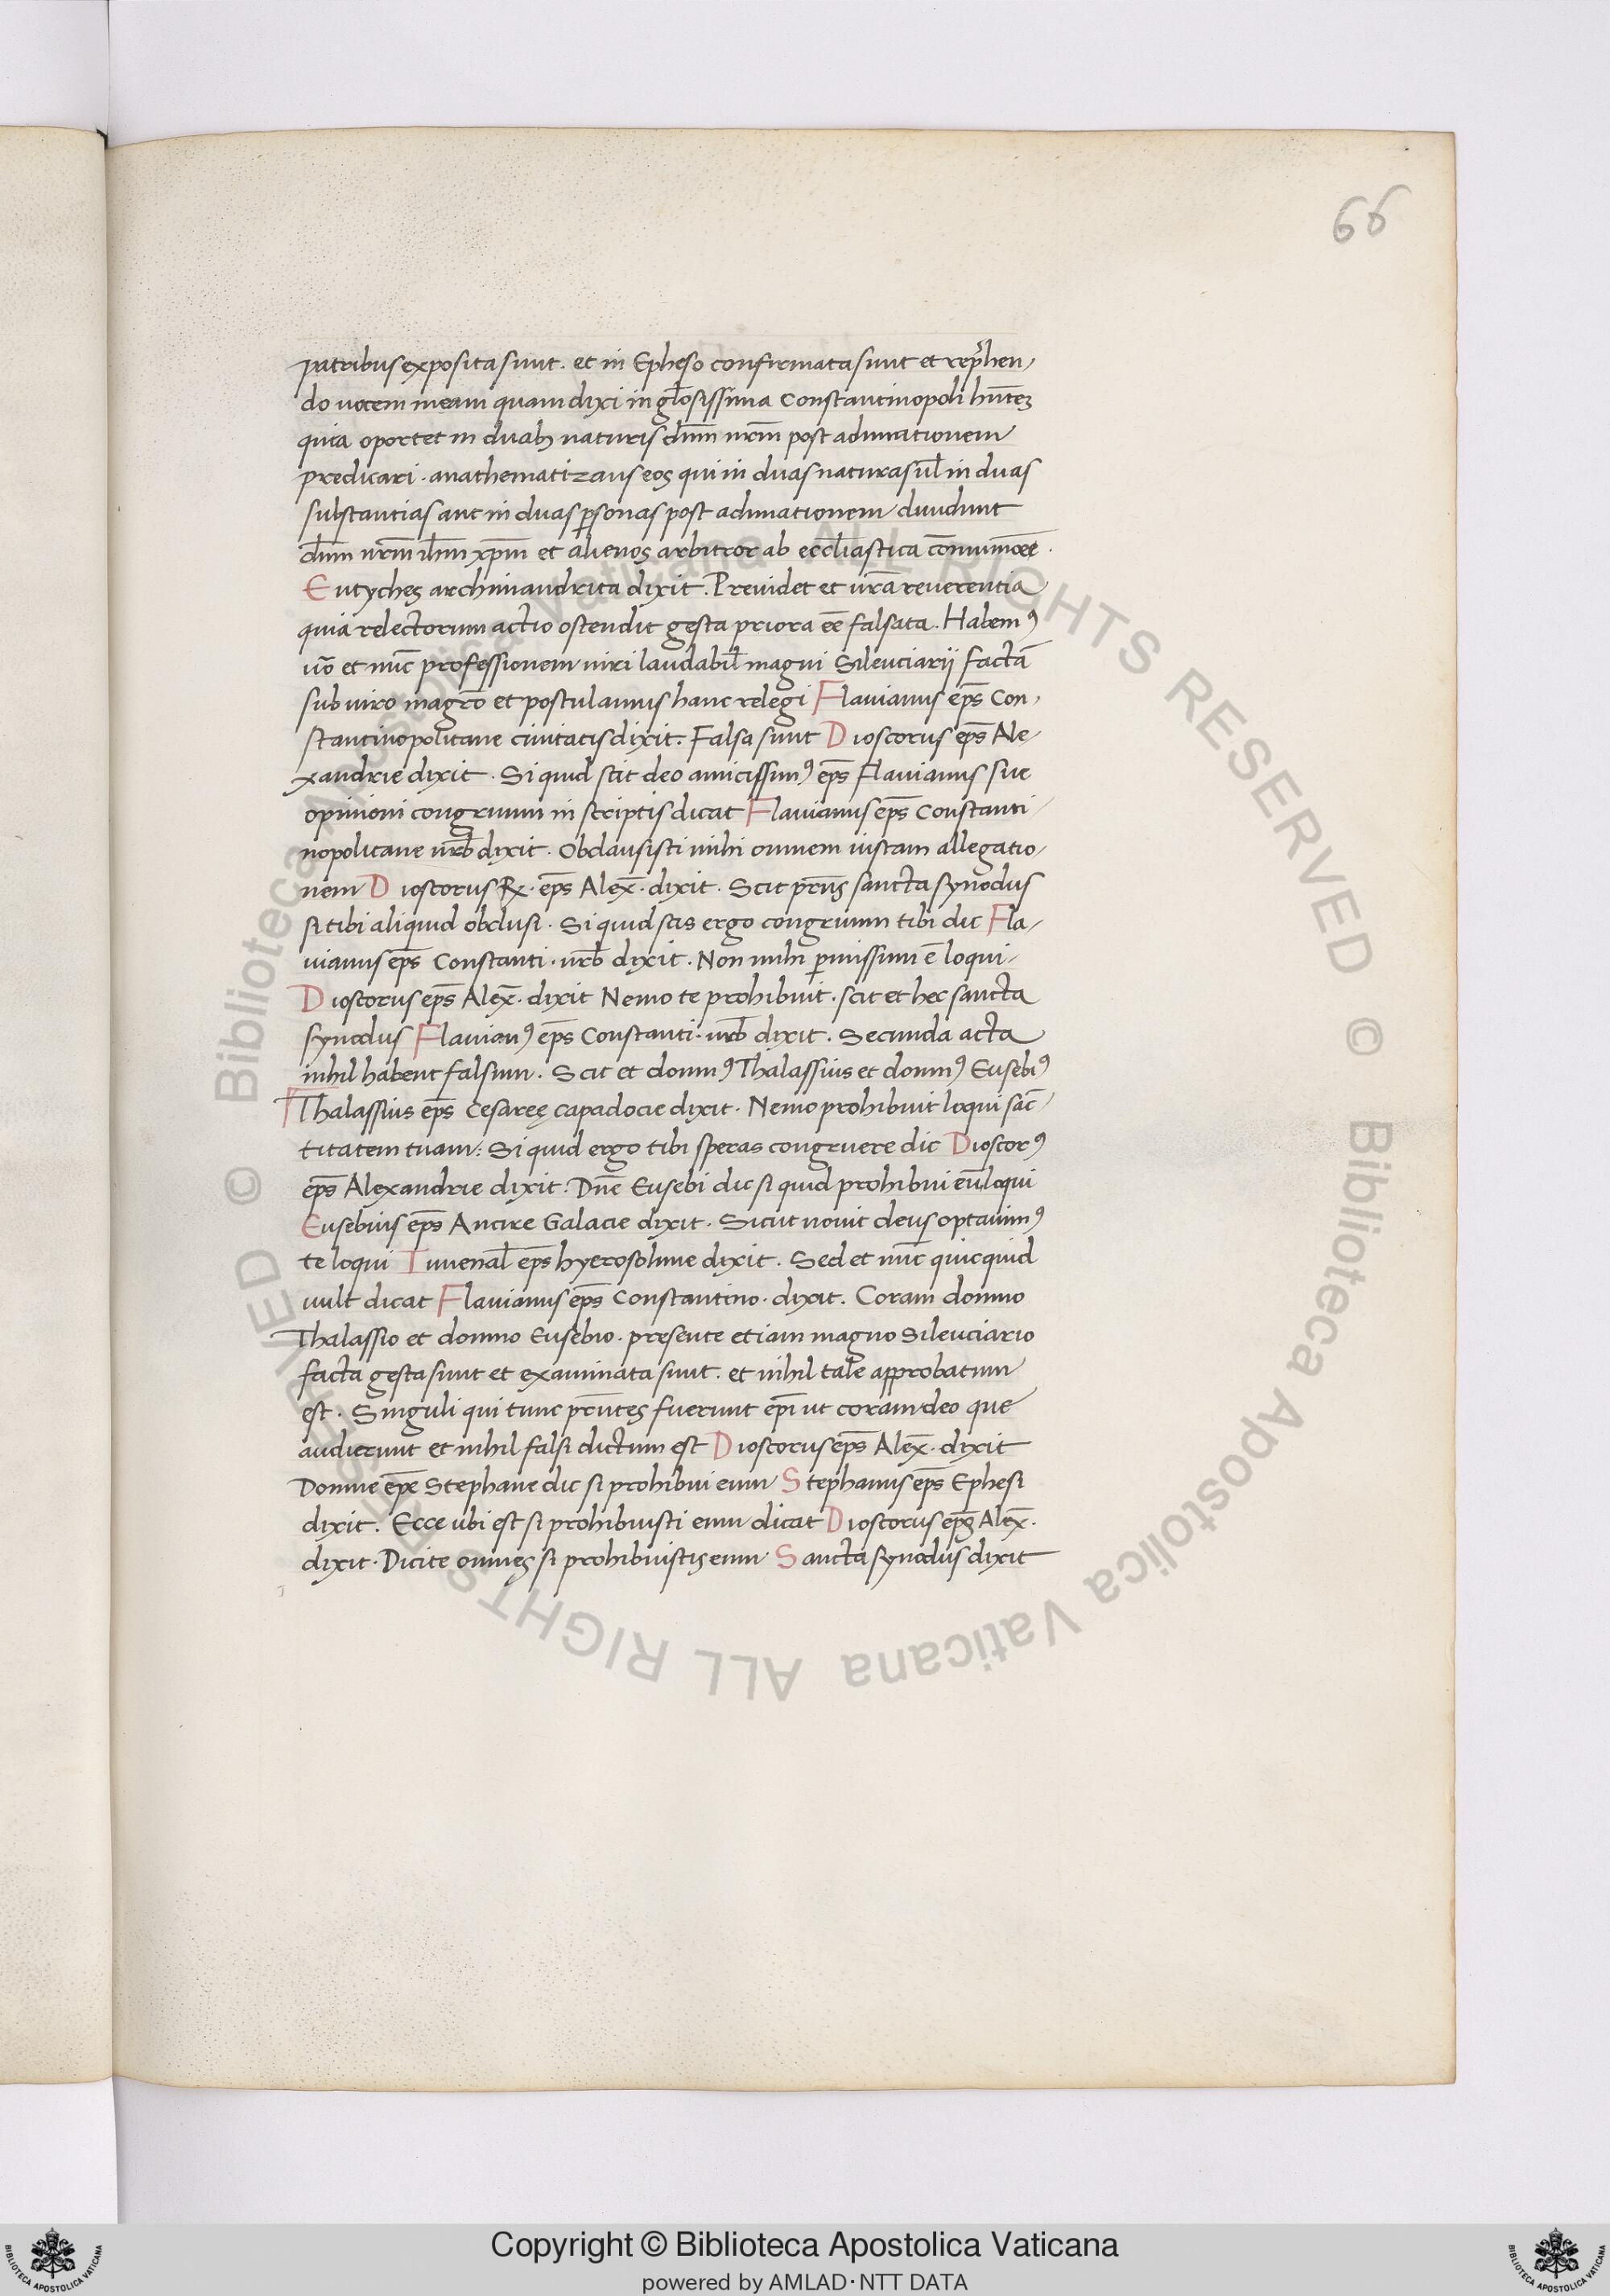 66
patribus exposita sunt. et in Epheso confirmata sunt et rep̄hen,
do uocem meam quam dixi in gl̄osissima Constantinopoli hñtez
quia oportet in duabꝫ naturis dñm nr̄m post adunationem
predicari. anathematizans eos qui in duas naturas ul̄ in duas
substantias aut in duas ꝑsonas post adunationem diuidunt
dñm nr̄m ih̄m xp̄m et alienos arbitror ab eccl̄iastica
Eutyches archimandrita dixit. Preuidet et ur̄a reuerentia
quia relectorum actio ostendit gesta priora ēē falsata. Habemꝰ
uō et nūc professionem uiri laudabil̄ magni Silenciarij factā
sub uiro magrō et postulamus hanc relegi Flauianus ep̄s Con,
stantinopolitane ciuitatis dixit. Falsa sunt Dioscorus ep̄s Ale,
xandrie dixit. Si quid scit deo amicissimꝰ ep̄s Flauianus sue
opinioni congruum in scriptis dicat Flauianus ep̄s Constanti,
nopolitane urb̄ dixit. Obclausisti mihi omnem iustam allegatio,
nem Dioscorus ℞. ep̄s Alex̄. dixit. Scit sancta synodus
si tibi aliquid obclusi. Si quid scis ergo congruum tibi dic Fla,
uianus ep̄s Constanti. urb̄ dixit. Non mihi ꝑmissum ē loqui,
Dioscorus ep̄s Alex̄. dixit Nemo te prohibuit. scit et hec sancta
synodus Flauianꝰ ep̄s Constanti. urb̄ dixit. Secunda acta
nihil habent falsum. Scit et domnꝰ Thalassius et domnꝰ Eusebiꝰ
Thalassius ep̄s Cesareę capadocie dixit. Nemo prohibuit loqui sāc,
titatem tuam: Si quid ergo tibi speras congruere dic Dioscorꝰ
ep̄s Alexandrie dixit. Dn̄e Eusebi dic si quid prohibui eū loqui
Eusebius ep̄s Ancire Galacie dixit. Sicut nouit deus optauimꝰ
te loqui Iuuenal̄ ep̄s hyerosolime dixit. Sed et nūc quicquid
uult dicat Flauianus ep̄s Constantino. dixit. Coram domno
Thalassio et domno Eusebio. presente etiam magno Silenciario
facta gesta sunt et examinata sunt. et nihil tale approbatum
est. Singuli qui tunc pr̄ntes fuerunt ep̄i ut coram deo que
audierunt et nihil falsi dictum est Dioscorus ep̄s Alex̄. dixit
Domne ep̄e Stephane dic si prohibui eum Stephanus ep̄s Ephesi
dixit. Ecce ubi est si prohibuisti eum dicat Dioscorus ep̄s Alex̄.
dixit. Dicite omnes si prohibuistis eum. Sancta synodus dixit
© Biblioteca Apostolica Vaticana ALL RIGHTS RESERVED © Biblioteca Apostolica Vaticana ALL RIGHTS RESERVED
Copyright © Biblioteca Apostolica Vaticana
powered by AMLAD・NTT DATA
BIBLIOTECA APOSTOLICA VATICANA
BIBLIOTECA APOSTOLICA VATICANA